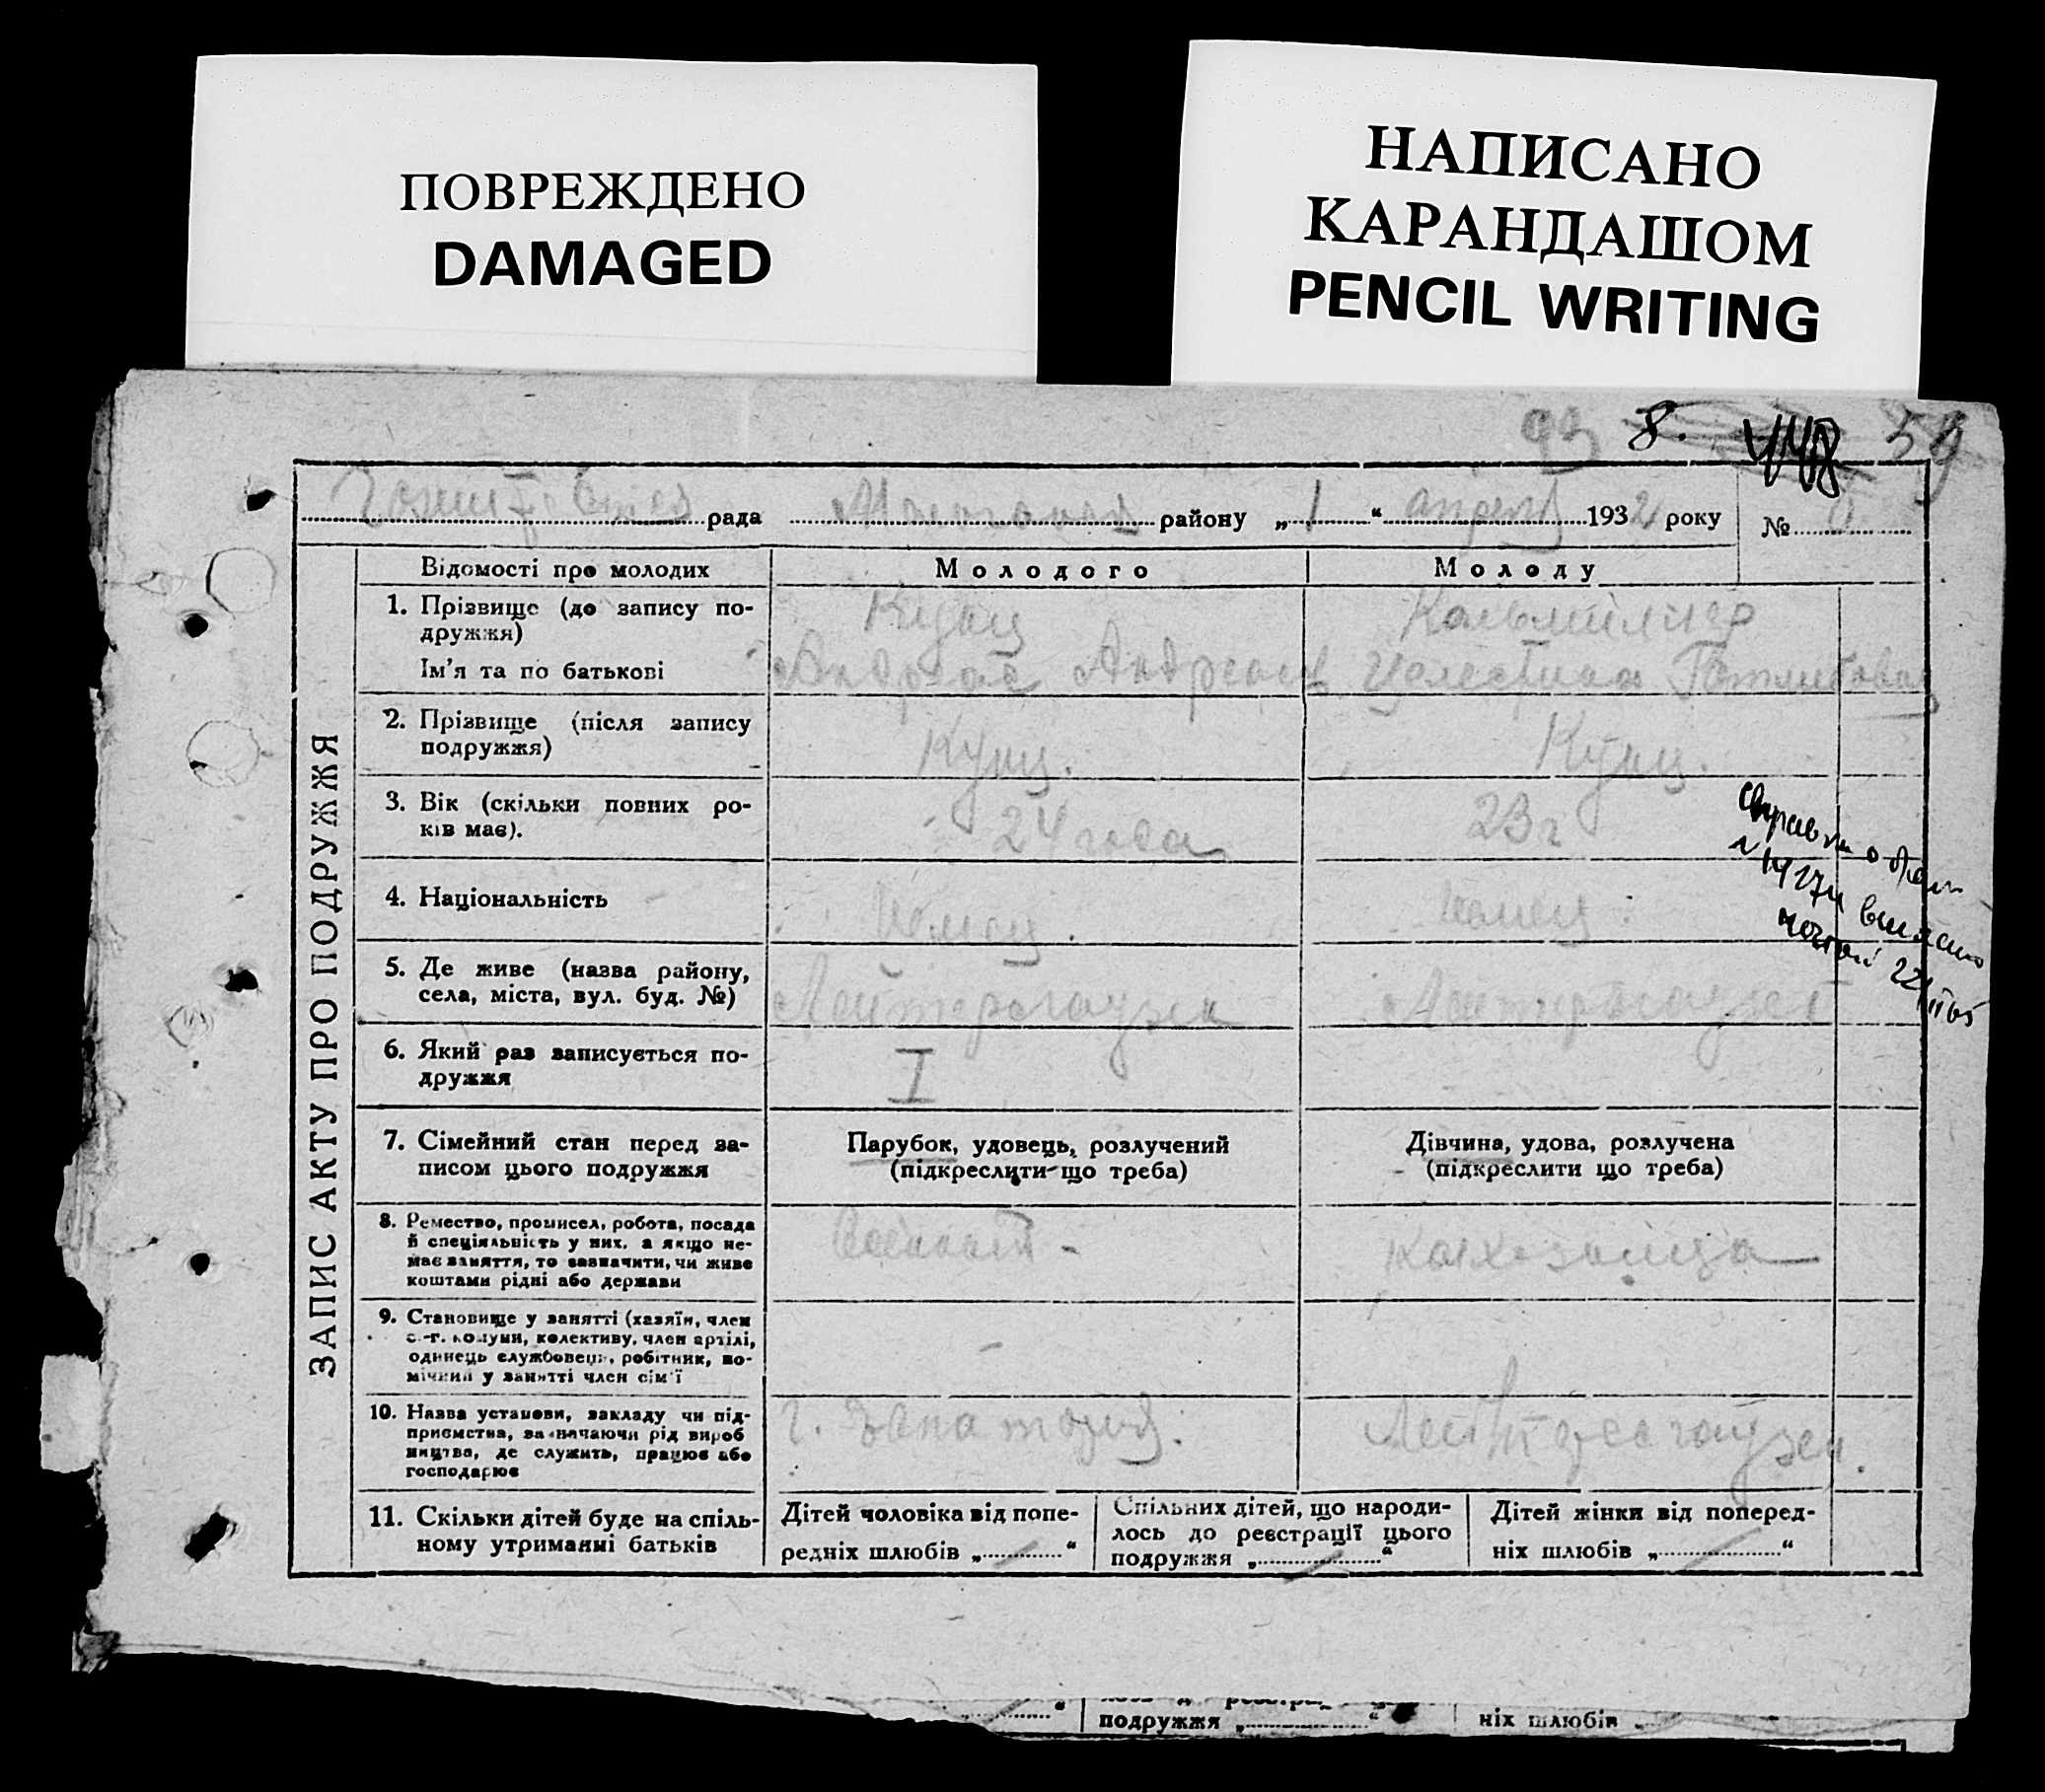 ПОВРЕЖДЕНО
DAMAGED
НАПИСАНО
КАРАНДАШОМ
PENCIL WRITING
93 8. 59
рада району „ 1 “ апреля 1932 року №
ЗАПИС АКТУ ПРО ПОДРУЖЖЯ
Відомості про молодих Молодого Молоду
1. Прізвище (до запису по-
дружжя) Кунц Кальмиллер
Ім'я та по батькові Андреас Андреасов Целестина Готлибовна
2. Прізвище (після запису
подружжя) Кунц. Кунц.
3. Вік (скільки повних ро-
ків має). 24 года 23 г
4. Національність Немец. Немец
5. Де живе (назва району,
села, міста, вул. буд. №) Лейтерсгаузен Лейтерсгаузен
6. Який раз записується по-
дружжя I
7. Сімейний стан перед за-
писом цього подружжя
Парубок, удовець, розлучений
(підкреслити що треба)
Дівчина, удова, розлучена
(підкреслити що треба)
8. Ремество, промисел, робота, посада
й спеціяльність у них, а якщо не-
має заняття, то зазначити, чи живе
коштами рідні або держави
колхозница
9. Становище у занятті (хазяїн, член
с.-г. комуни, колективу, член артілі,
одинець службовець, робітник, по-
мічний у занятті член сім'ї
-
10. Назва установи, закладу чи під-
приємства, зазначаючи рід вироб
ництва, де служить, працює або
господарює
г. Лейтерсгаузен.
11. Скільки дітей буде на спіль-
ному утриманні батьків
Дітей чоловіка від попе-
редніх шлюбів „ / “
Спільних дітей, що народи-
лось до реєстрації цього
подружжя „ / “
Дітей жінки від поперед-
ніх шлюбів „ / “
справка о браке
выслано
почтой
подружжя „ “
ніх шлюбів „